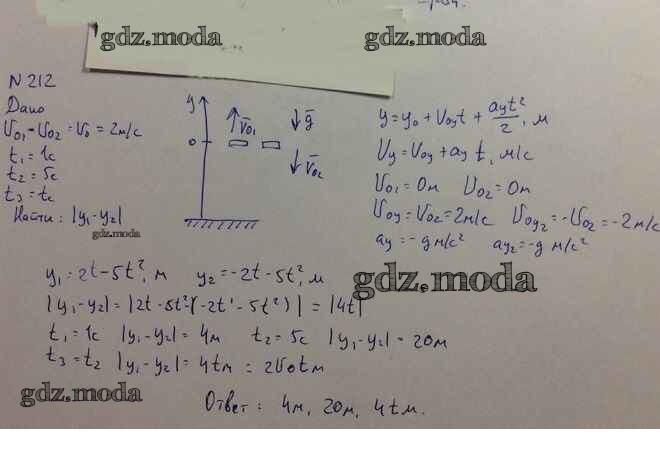 gdz.moda gdz.moda
N 212
Дано
V₀₁ = V₀₂ = V₀ = 2м/с
t₁ = 1с
t₂ = 5с
t₃ = tс
Найти: |y₁-y₂|
gdz.moda
y
0
V̄₀₁
ḡ
V̄₀₂
y = y₀ + V₀yt + ayt²/2, м
Vy = V₀y + ay t, м/с
V₀₁ = 0м V₀₂ = 0м
V₀y = V₀₂ = 2м/с V₀y₂ = -V₀₂ = -2м/с
ay = -g м/с² ay₂ = -g м/с²
y₁ = 2t - 5t², м y₂ = -2t - 5t², м
gdz.moda
|y₁-y₂| = |2t - 5t² - (-2t - 5t²)| = |4t|
t₁ = 1с |y₁-y₂| = 4м t₂ = 5с |y₁-y₂| = 20м
t₃ = t₂ |y₁-y₂| = 4tм = 2V₀tм
gdz.moda
Ответ: 4м, 20м, 4tм.